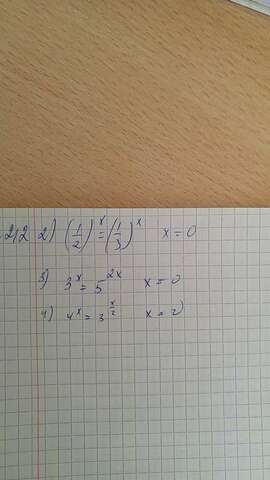 212 2) (1/2)^x = (1/3)^x x = 0
3) 3^x = 5^2x x = 0
4) 4^x = 3^x/2 x = 0